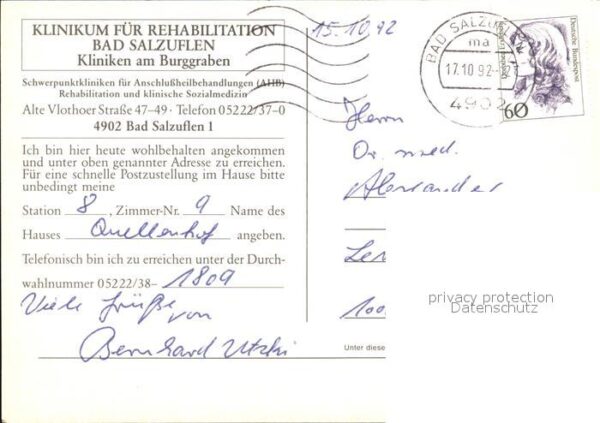 KLINIKUM FÜR REHABILITATION
BAD SALZUFLEN
Kliniken am Burggraben
Schwerpunktkliniken für Anschlußheilbehandlungen (AHB)
Rehabilitation und klinische Sozialmedizin
Alte Vlothoer Straße 47–49 · Telefon 05222/37-0
4902 Bad Salzuflen 1
Ich bin hier heute wohlbehalten angekommen
und unter oben genannter Adresse zu erreichen.
Für eine schnelle Postzustellung im Hause bitte
unbedingt meine
Station 8, Zimmer-Nr. 9 Name des
Hauses Quellenhof angeben.
Telefonisch bin ich zu erreichen unter der Durch-
wahlnummer 05222/38-1809
Viele Grüße
von
Bernhard
15.10.92
BAD SALZUFLEN
ma
17.10.92
4902
Deutsche Bundespost
60
Herrn
Dr. med.
Alexander
100
Unter diese
privacy protection
Datenschutz